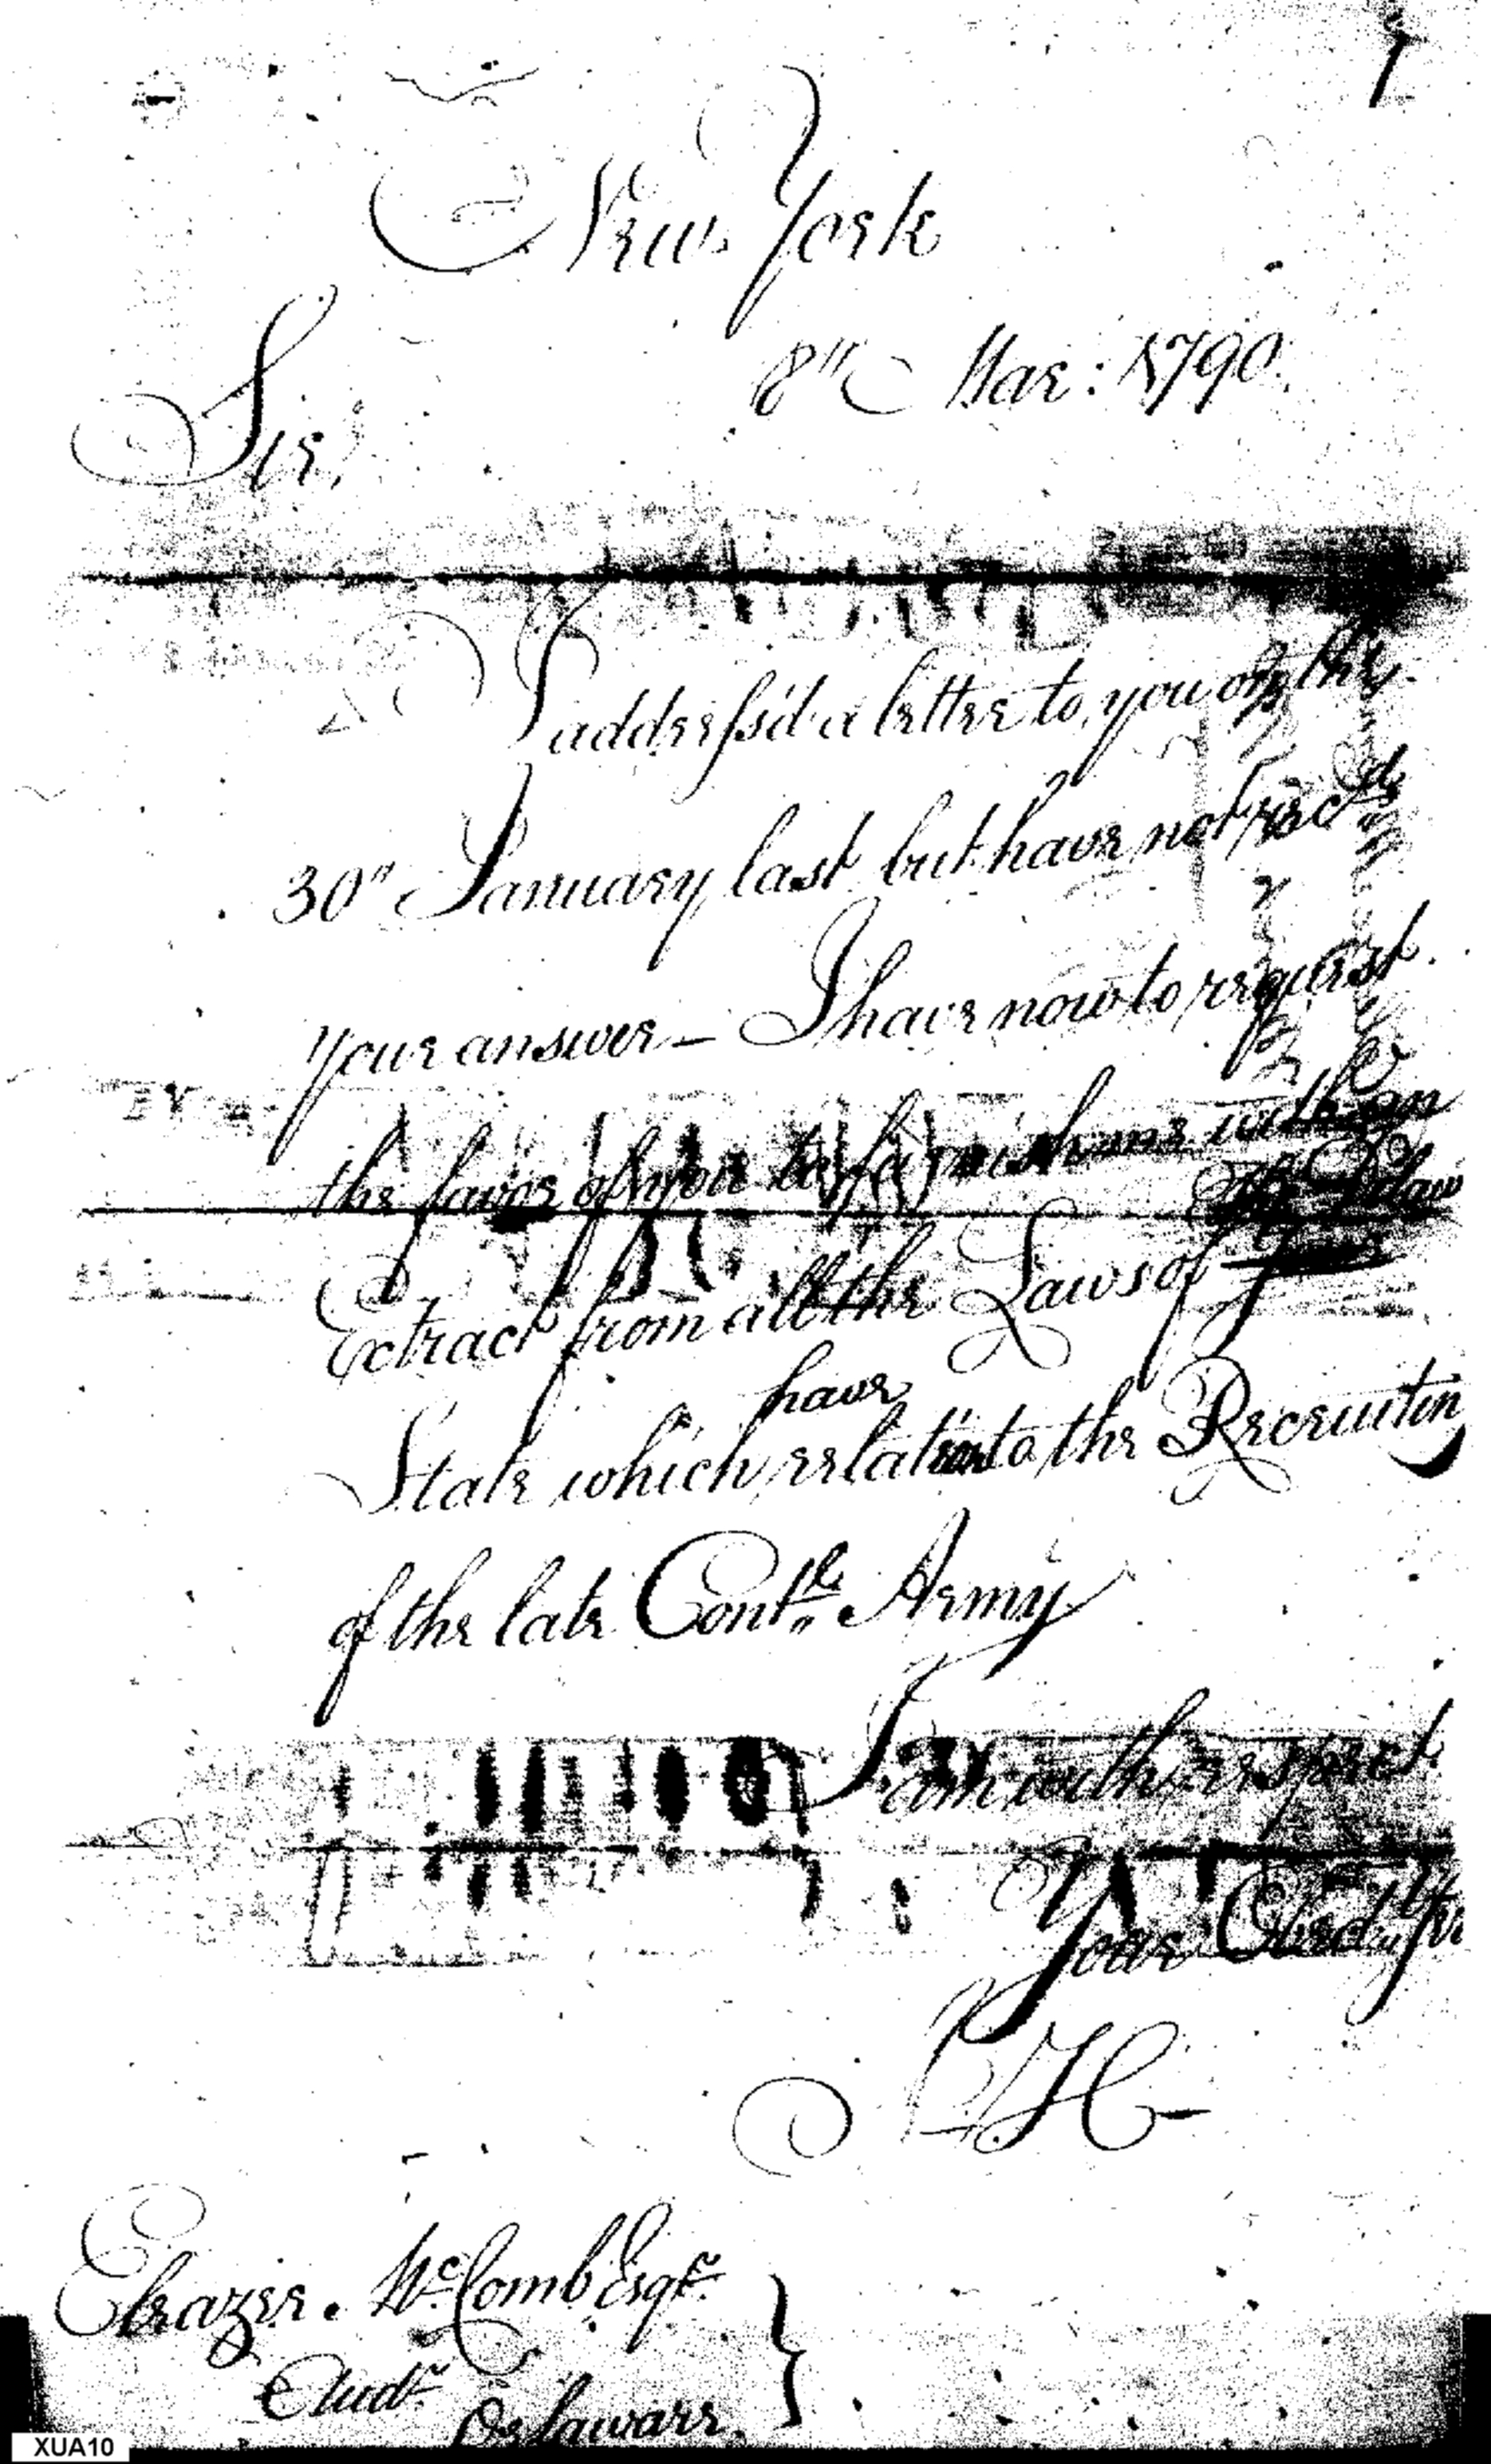 New York
8th Mar: 1790.
Sir,
I address'd a letter to you on the
30" January last but have not rec'd
your answer – I have now to request
the favor of you to furnish me with an
of Delaw
Extract from all the Laws of
have
State which relation to the Recruitin
of the late Contl. Army
I am with respect
Your Obed.
H
Eleazer McComb Esqr.
Audr.
Delaware.
XUA10